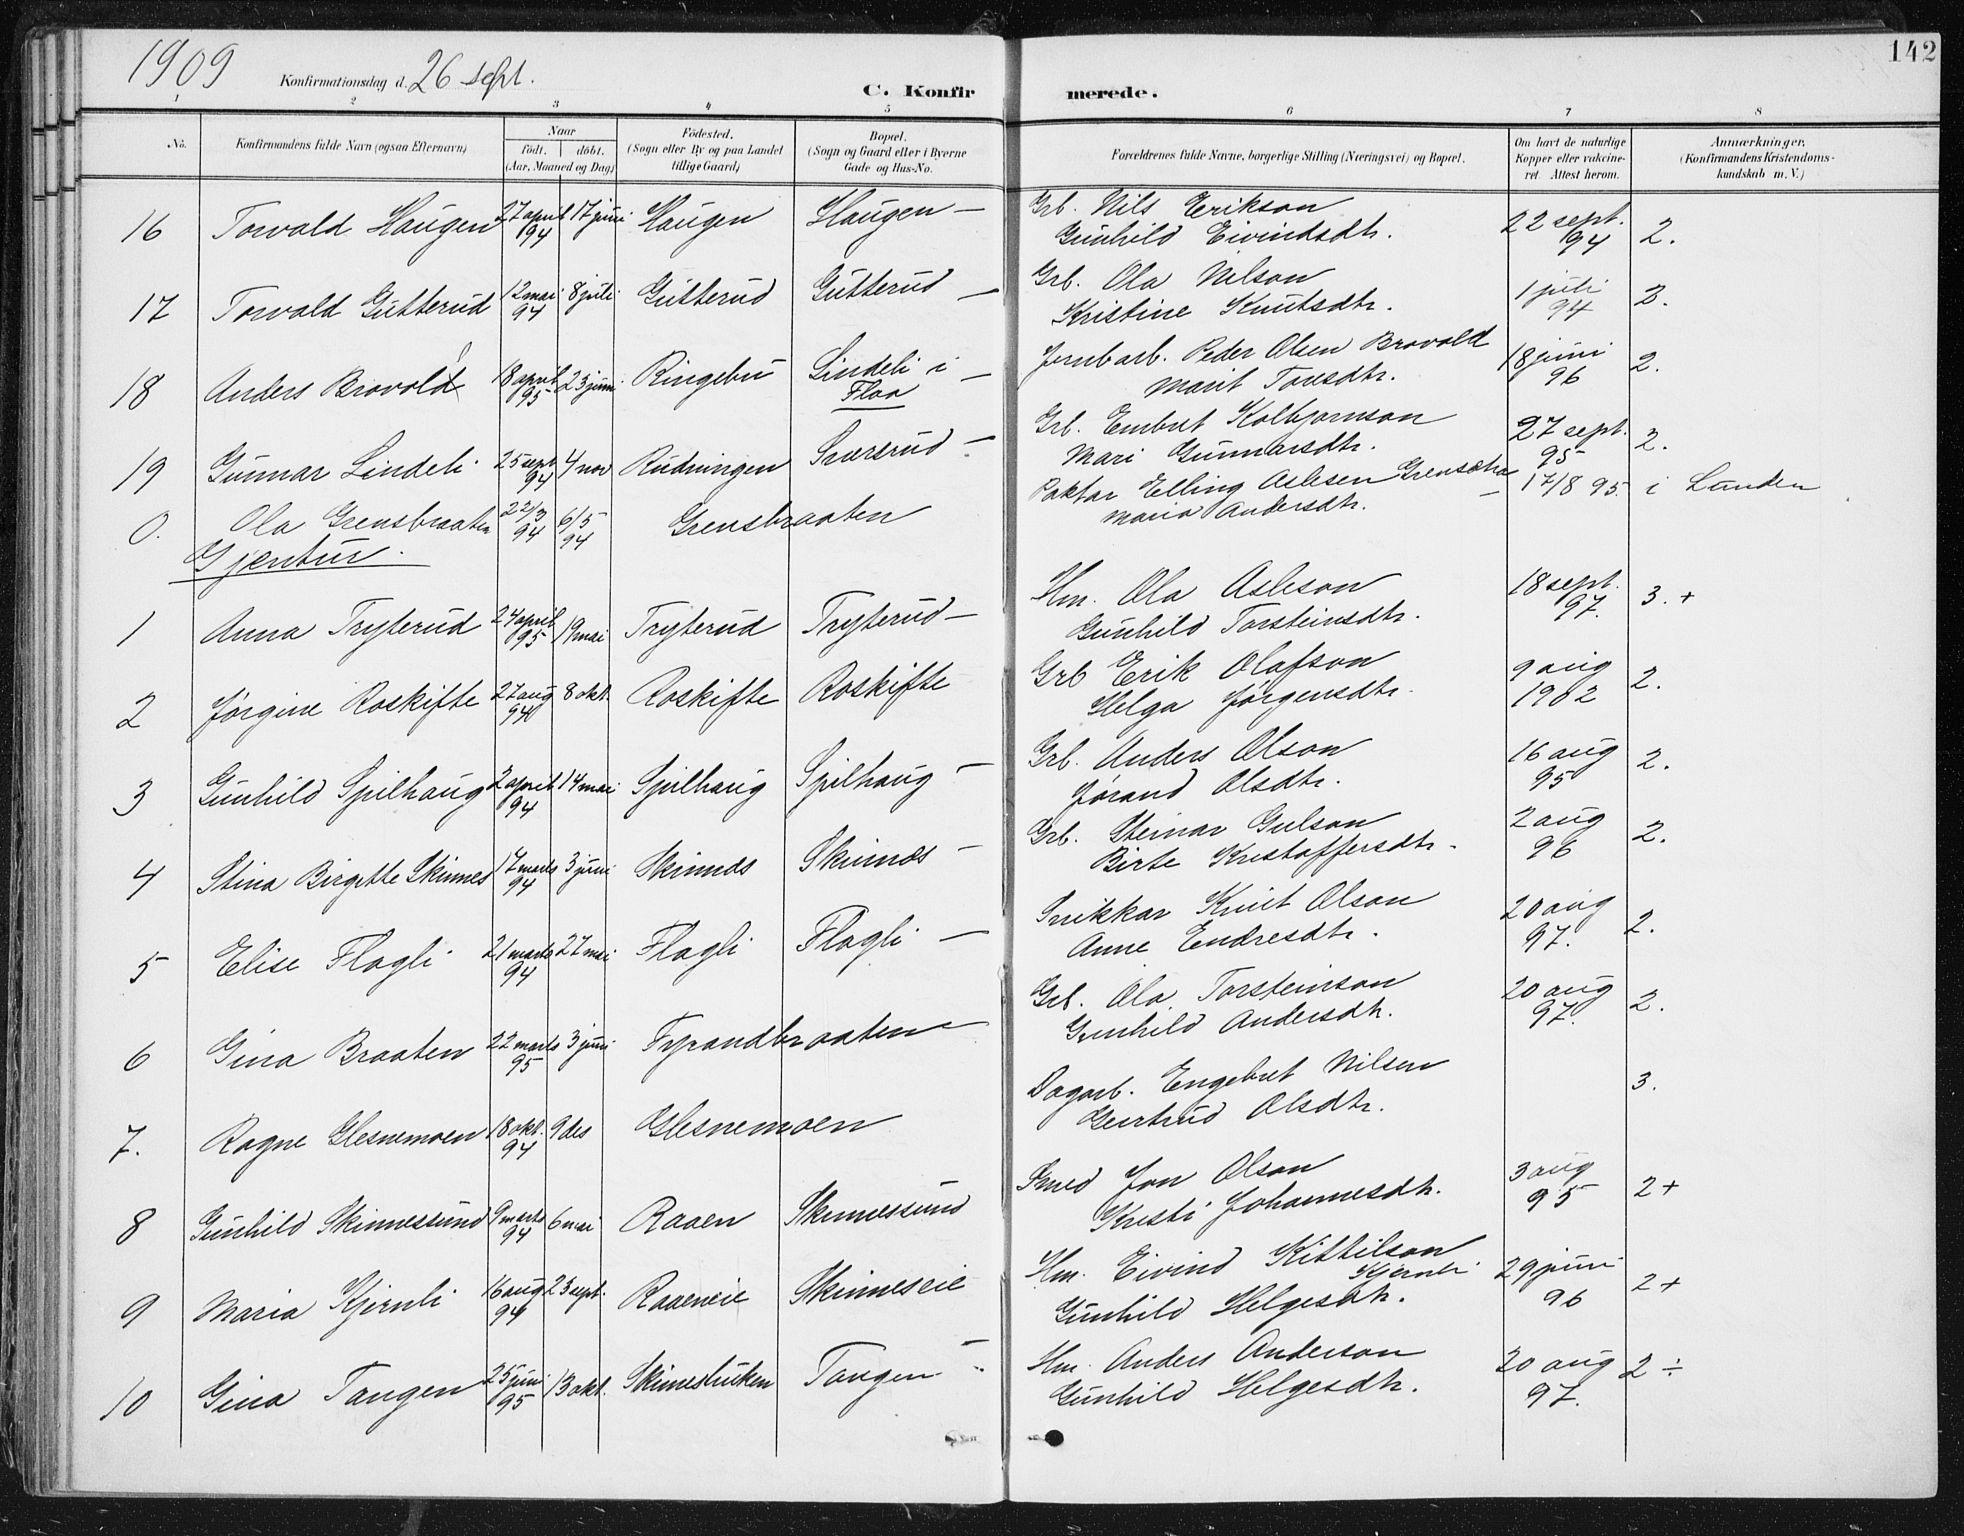 1909 Konfirmationsdag d. 26 sept. C. Konfirmerede. 142
1 2 3 4 5 6 7 8
No. Konfirmandens fulde Navn (ogsaa Efternavn) Naar født. døbt. (Aar, Maaned og Dag) Fødested. (Sogn eller By og paa Landet tillige Gaard) Bopæl. (Sogn og Gaard eller i Byerne Gade og Hus-No. Forældrenes fulde Navne, borgerlige Stilling (Næringsvei) og Bopæl. Om havt de naturlige Kopper eller vakcineret. Attest herom. Anmærkninger. (Konfirmandens Kristendomskundskab m. V.)
16 Torvald Haugen 27 april 94 17 juni Haugen Haugen — Grb. Nils Erikson 22 sept. 94 2.
Gunhild Eivindsdtr.
17 Torvald Gutterud 12 mai 94 8 juli Gutterud Gutterud — Grb. Ola Nilson 1 juli 94 2.
Kristine Knutsdtr.
18 Anders Brovold 18 april 95 23 juni Ringebu Lindeli i Flaa — Jernbarb. Peder Olsen Brovold 18 juni 96 2.
Marit Toresdtr.
19 Gunnar Lindeli 25 sept 94 4 nov Rudningen Sversrud — Grb. Embret Kolbjørnson 27 sept. 95 2.
Mari Gunnarsdtr.
0. Ola Grensbraaten 22/3 94 6/5 94 Grensbraaten Paktar Elling Aslesen — 17/8 95. i Lunden
Maria Andersdtr.
Gjentur
1 Anna Tryterud 24 april 95 19 mai Tryterud Tryterud — Hm. Ola Asleson 18 sept. 97. 3. +
Gunhild Torsteinsdtr.
2 Jørgine Roskifte 27 aug 94 8 okt. Roskifte Roskifte Grb Erik Olafson 9 aug 1902 2.
Helga Jørgensdtr.
3 Gunhild Spilhaug 2 april 94 14 mai Spilhaug Spilhaug — Grb. Anders Olson 16 aug 95 2.
Jørand Olsdtr.
4 Stina Birgitte Skinnes 17 marts 94 3 juni Skinnes Skinnes — Grb. Steinar Gulson 2 aug 96 2.
Birte Kristoffersdtr.
5 Elise Flagli 21 marts 94 27 mai Flagli Flagli — Snikkar Knut Olson 20 aug 97. 2.
Anne Endresdtr.
6 Gina Braaten 22 marts 95 3 juni Fyrandbraaten Grb. Ola Torsteinson 20 aug 97. 2.
Gunhild Andersdtr.
7. Ragne Glesnemoen 18 okt. 94 9 des Glesnemoen Dagarb. Engebret Nilsen 3.
Guertrud Olsdtr.
8 Gunhild Skinnessund 9 marts 94 6 mai Raaen Skinnessund Smed Jon Olson 3 aug 95 2 +
Kristi Johannesdtr.
9 Maria Kjernli 16 aug 94 23 sept. Raaeneie Skinneseie Hm. Eivind Kittilson Kjernli 29 juni 96 2 +
Gunhild Helgesdtr.
10 Gina Tangen 25 juni 95 13 okt. Tangen — Hm. Anders Anderson 20 aug 97. 2 ÷
Gunhild Helgesdtr.